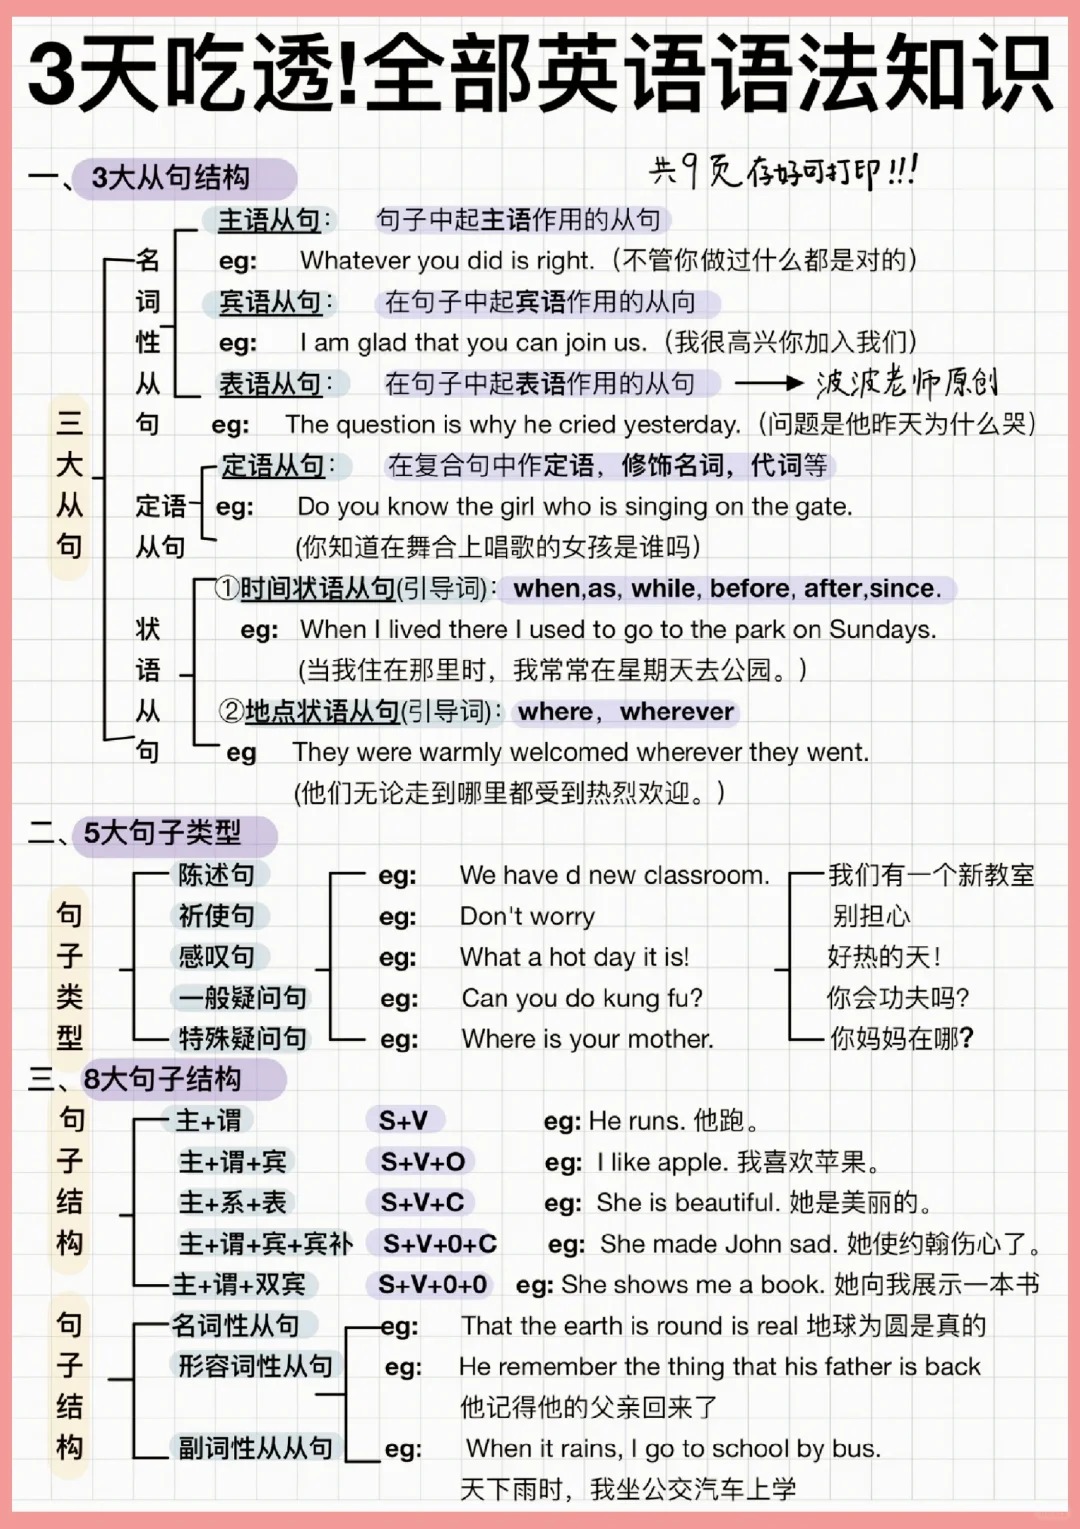 3天吃透!全部英语语法知识
一、3大从句结构
共9页 存好可打印!!!
三大从句
名词性从句
主语从句： 句子中起主语作用的从句
eg: Whatever you did is right.（不管你做过什么都是对的）
宾语从句： 在句子中起宾语作用的从向
eg: I am glad that you can join us.（我很高兴你加入我们）
表语从句： 在句子中起表语作用的从句
波波老师原创
eg: The question is why he cried yesterday.（问题是他昨天为什么哭）
定语从句
定语从句： 在复合句中作定语，修饰名词，代词等
eg: Do you know the girl who is singing on the gate.
(你知道在舞合上唱歌的女孩是谁吗）
状语从句
①时间状语从句(引导词)： when,as, while, before, after,since.
eg: When I lived there I used to go to the park on Sundays.
(当我住在那里时，我常常在星期天去公园。）
②地点状语从句(引导词)： where，wherever
eg They were warmly welcomed wherever they went.
(他们无论走到哪里都受到热烈欢迎。）
二、5大句子类型
句子类型
陈述句 eg: We have d new classroom. 我们有一个新教室
祈使句 eg: Don't worry 别担心
感叹句 eg: What a hot day it is! 好热的天!
一般疑问句 eg: Can you do kung fu? 你会功夫吗?
特殊疑问句 eg: Where is your mother. 你妈妈在哪?
三、8大句子结构
句子结构
主+谓 S+V eg: He runs. 他跑。
主+谓+宾 S+V+O eg: I like apple. 我喜欢苹果。
主+系+表 S+V+C eg: She is beautiful. 她是美丽的。
主+谓+宾+宾补 S+V+0+C eg: She made John sad. 她使约翰伤心了。
主+谓+双宾 S+V+0+0 eg: She shows me a book. 她向我展示一本书
句子结构
名词性从句 eg: That the earth is round is real 地球为圆是真的
形容词性从句 eg: He remember the thing that his father is back
他记得他的父亲回来了
副词性从从句 eg: When it rains, I go to school by bus.
天下雨时，我坐公交汽车上学